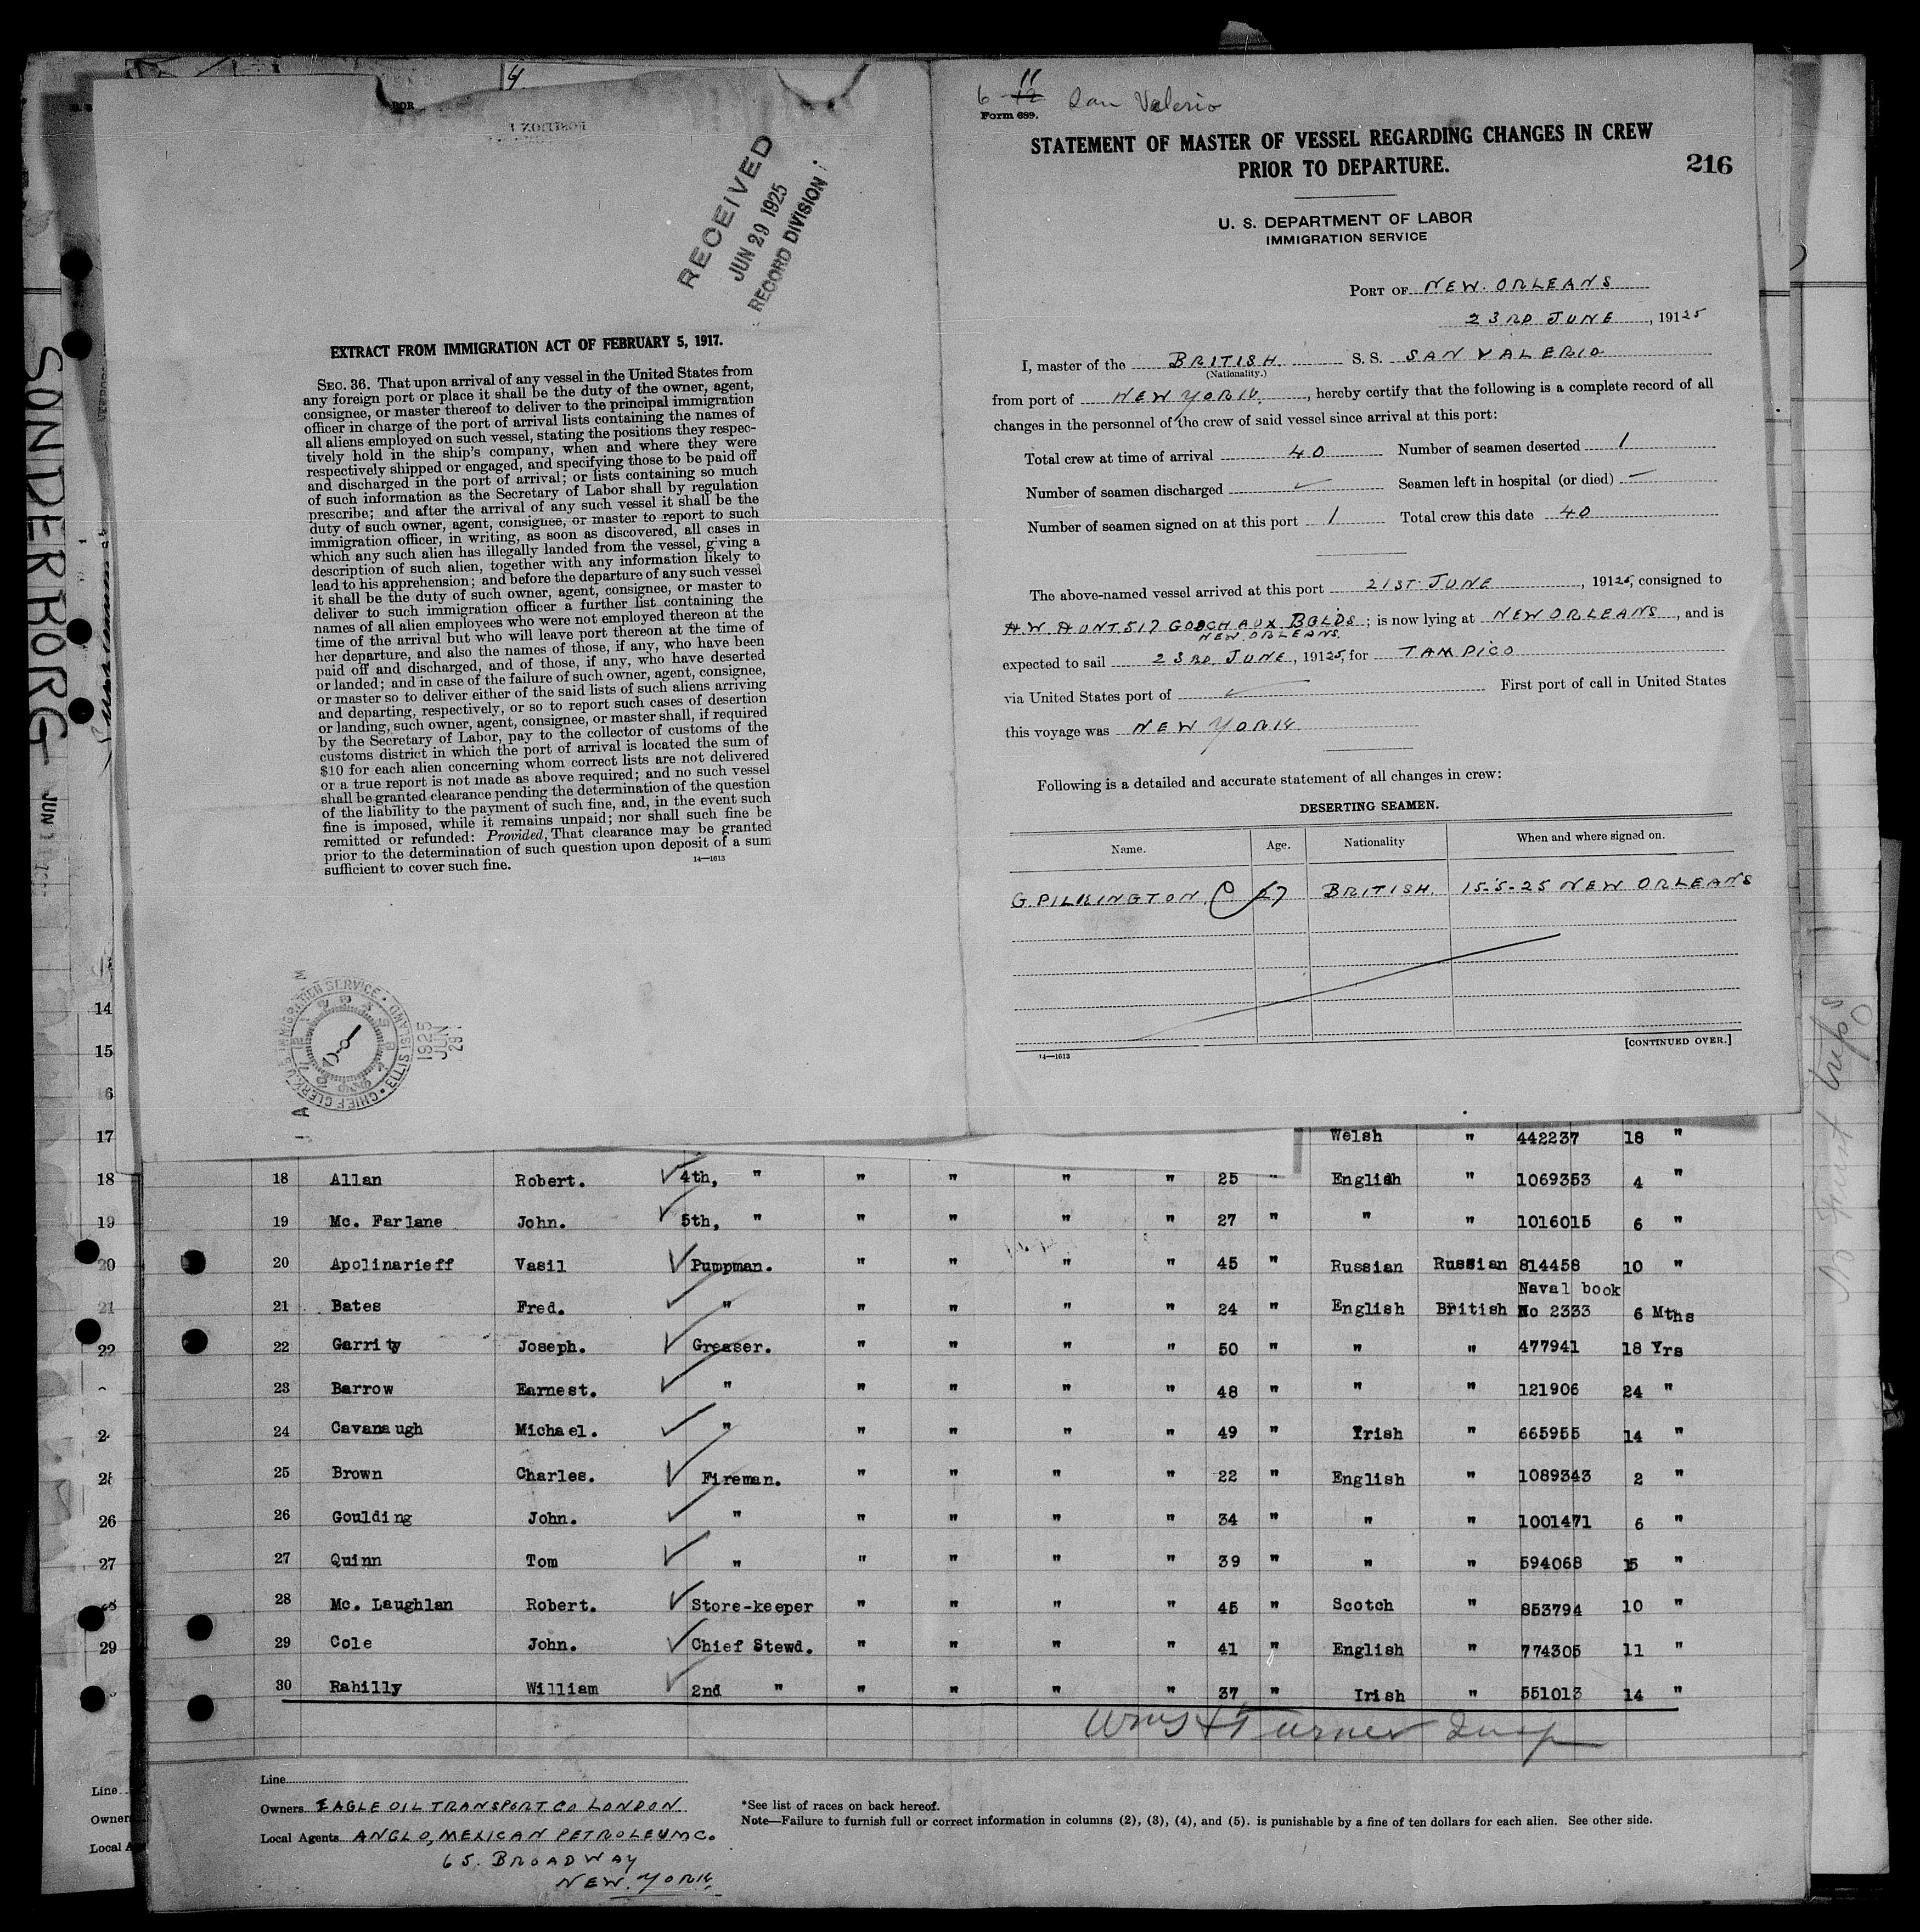 SONDERBORG
JUN
RECEIVED
JUN 29 1925
RECORD DIVISION
EXTRACT FROM IMMIGRATION ACT OF FEBRUARY 5, 1917.
SEC. 36. That upon arrival of any vessel in the United States from
any foreign port or place it shall be the duty of the owner, agent,
consignee, or master thereof to deliver to the principal immigration
officer in charge of the port of arrival lists containing the names of
all aliens employed on such vessel, stating the positions they respec-
tively hold in the ship's company, when and where they were
respectively shipped or engaged, and specifying those to be paid off
and discharged in the port of arrival; or lists containing so much
of such information as the Secretary of Labor shall by regulation
prescribe; and after the arrival of any such vessel it shall be the
duty of such owner, agent, consignee, or master to report to such
immigration officer, in writing, as soon as discovered, all cases in
which any such alien has illegally landed from the vessel, giving a
description of such alien, together with any information likely to
lead to his apprehension; and before the departure of any such vessel
it shall be the duty of such owner, agent, consignee, or master to
deliver to such immigration officer a further list containing the
names of all alien employees who were not employed thereon at the
time of the arrival but who will leave port thereon at the time of
her departure, and also the names of those, if any, who have been
paid off and discharged, and of those, if any, who have deserted
or landed; and in case of the failure of such owner, agent, consignee,
or master so to deliver either of the said lists of such aliens arriving
and departing, respectively, or so to report such cases of desertion
or landing, such owner, agent, consignee, or master shall, if required
by the Secretary of Labor, pay to the collector of customs of the
customs district in which the port of arrival is located the sum of
$10 for each alien concerning whom correct lists are not delivered
or a true report is not made as above required; and no such vessel
shall be granted clearance pending the determination of the question
of the liability to the payment of such fine, and, in the event such
fine is imposed, while it remains unpaid; nor shall such fine be
remitted or refunded: Provided, That clearance may be granted
prior to the determination of such question upon deposit of a sum
sufficient to cover such fine.
14—1613
CHIEF CLERK, U.S. IMMIGRATION SERVICE • ELLIS ISLAND
1925
JUN
11
6 12 San Valerio
Form 689.
STATEMENT OF MASTER OF VESSEL REGARDING CHANGES IN CREW
PRIOR TO DEPARTURE.
216
U. S. DEPARTMENT OF LABOR
IMMIGRATION SERVICE
PORT OF NEW ORLEANS
23RD JUNE, 19125
I, master of the BRITISH S. S. SAN VALERIO
(Nationality.)
from port of NEW YORK, hereby certify that the following is a complete record of all
changes in the personnel of the crew of said vessel since arrival at this port:
Total crew at time of arrival 40 Number of seamen deserted 1
Number of seamen discharged Seamen left in hospital (or died) —
Number of seamen signed on at this port 1 Total crew this date 40
The above-named vessel arrived at this port 21ST JUNE, 19125, consigned to
H.W. HUNT. 517 GODCHAUX BGLDS; is now lying at NEW ORLEANS, and is
NEW ORLEANS.
expected to sail 23RD JUNE, 19125, for TAMPICO
via United States port of First port of call in United States
this voyage was NEW YORK
Following is a detailed and accurate statement of all changes in crew:
DESERTING SEAMEN.
Name. Age. Nationality When and where signed on.
G. PILKINGTON 27 BRITISH. 15-5-25 NEW ORLEANS
14—1613
[CONTINUED OVER.]
14
15
17 Welsh " 442237 18 "
18 18 Allan Robert. 4th, " " " " " 25 " English " 1069353 4 "
19 19 Mc. Farlane John. 5th, " " " " " 27 " " " 1016015 6 "
20 20 Apolinarieff Vasil Pumpman. " " " " 45 " Russian Russian 814458 10 "
Naval book
21 21 Bates Fred. " " " " " 24 " English British No 2333 6 Mths
22 22 Garrity Joseph. Greaser. " " " " 50 " " " 477941 18 Yrs
23 Barrow Earnest. " " " " " 48 " " " 121906 24 "
24 Cavanaugh Michael. " " " " " 49 " Irish " 665955 14 "
25 Brown Charles. Fireman. " " " " 22 " English " 1089343 2 "
26 26 Goulding John. " " " " " 34 " " " 1001471 6 "
27 27 Quinn Tom " " " " " 39 " " " 594068 15 "
28 Mc. Laughlan Robert. Store-keeper " " " " 45 " Scotch " 853794 10 "
29 29 Cole John. Chief Stewd. " " " " 41 " English " 774305 11 "
30 Rahilly William 2nd " " " " " 37 " Irish " 551013 14 "
Turner
Line
Owners EAGLE OIL TRANSPORT CO LONDON
Local Agents ANGLO, MEXICAN PETROLEUM C.
65. BROADWAY
NEW YORK
*See list of races on back hereof.
Note—Failure to furnish full or correct information in columns (2), (3), (4), and (5). is punishable by a fine of ten dollars for each alien. See other side.
Line
Owner
Local A